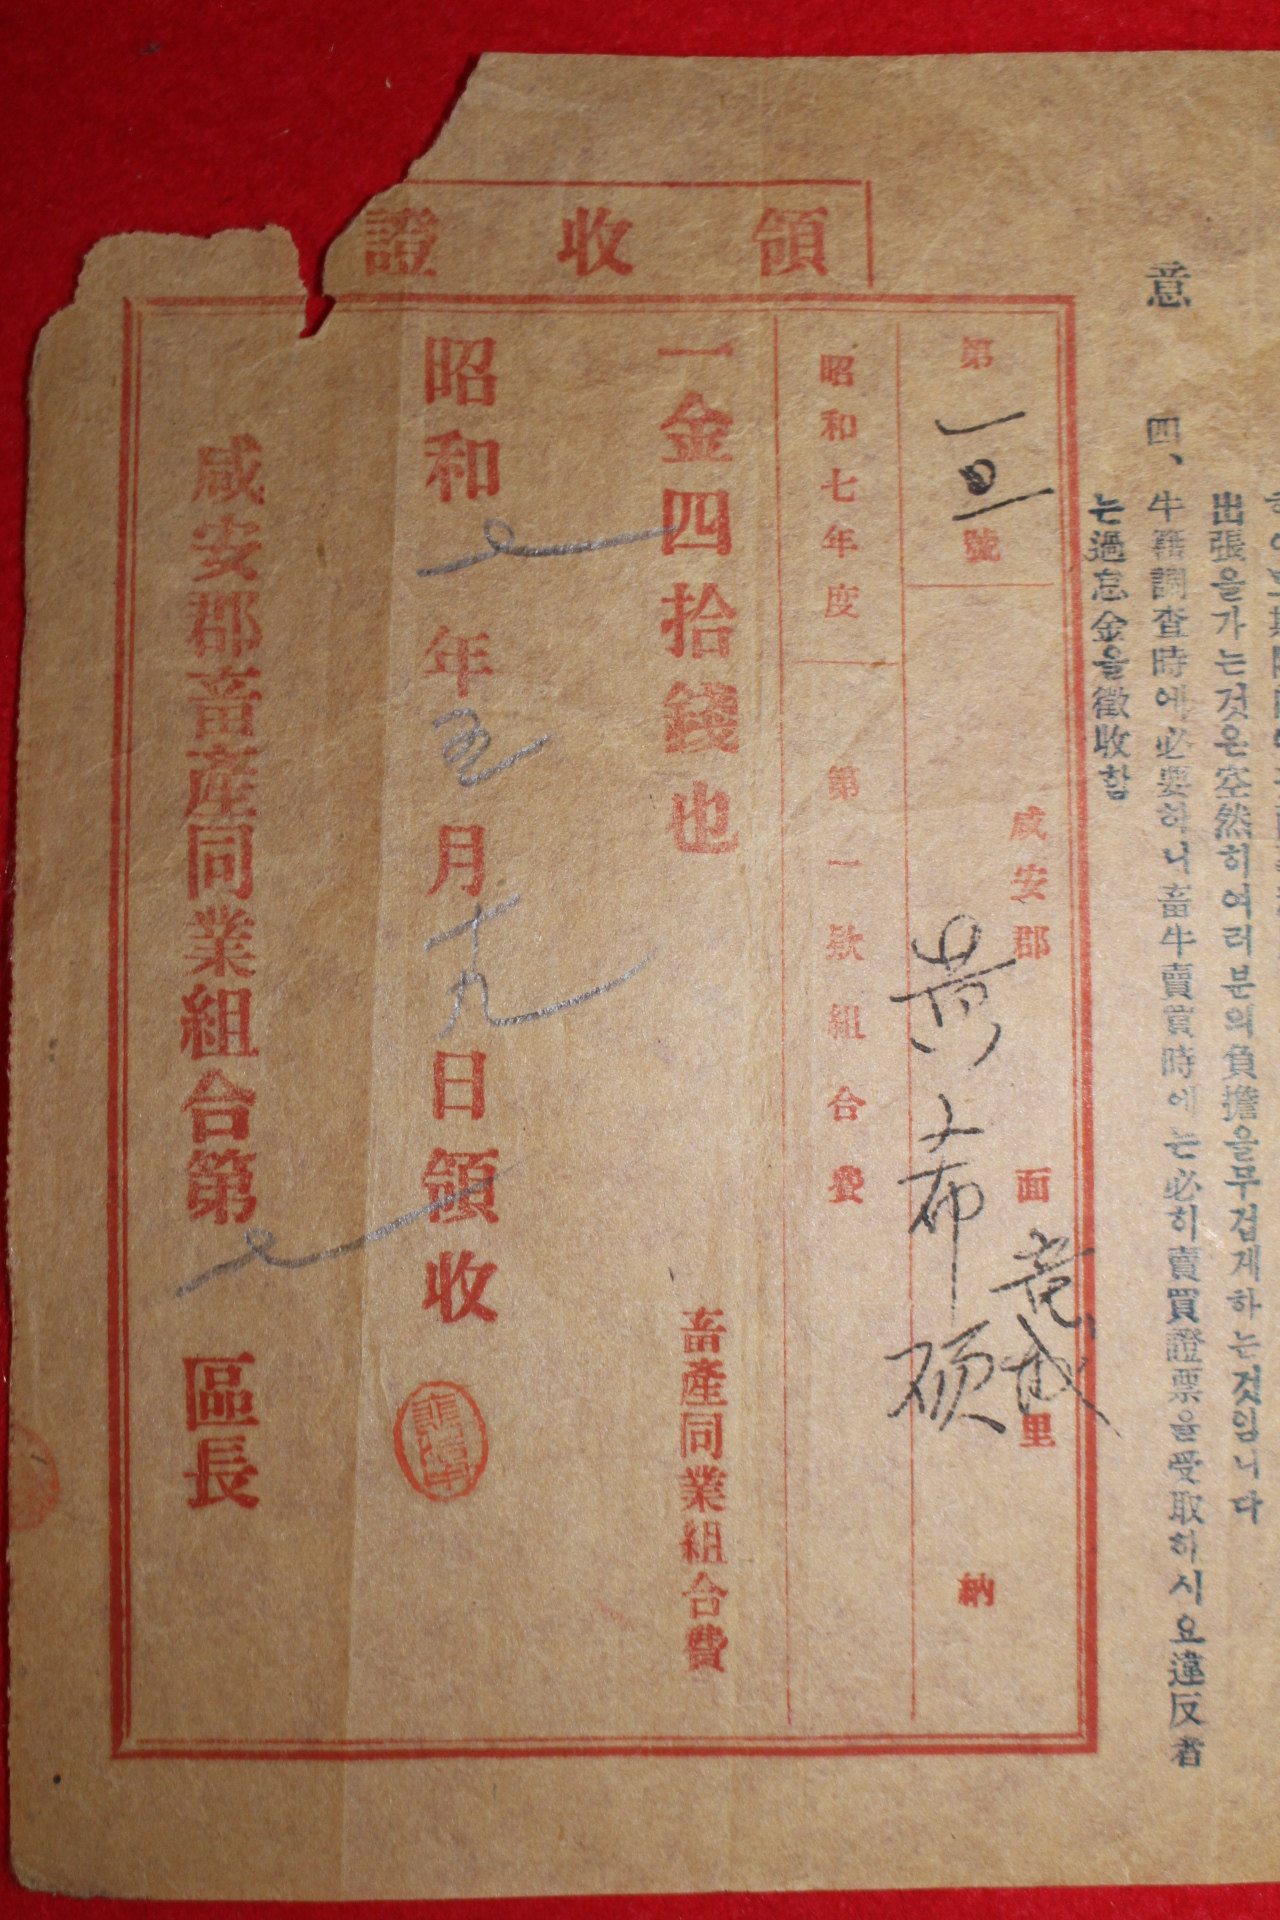 意
出張을가는것은空然히여러분의負擔을무겁게하는것임니다
四、牛籍調査時에必要하니畜牛賣買時에는必히賣買證票을受取하시요違反者
는過怠金을徵收함
領收證
第 號
咸安郡 面 里
黃希碩 納
昭和七年度 第一款組合費
一金四拾錢也
畜產同業組合費
昭和七年五月十九日領收
咸安郡畜產同業組合第七區長